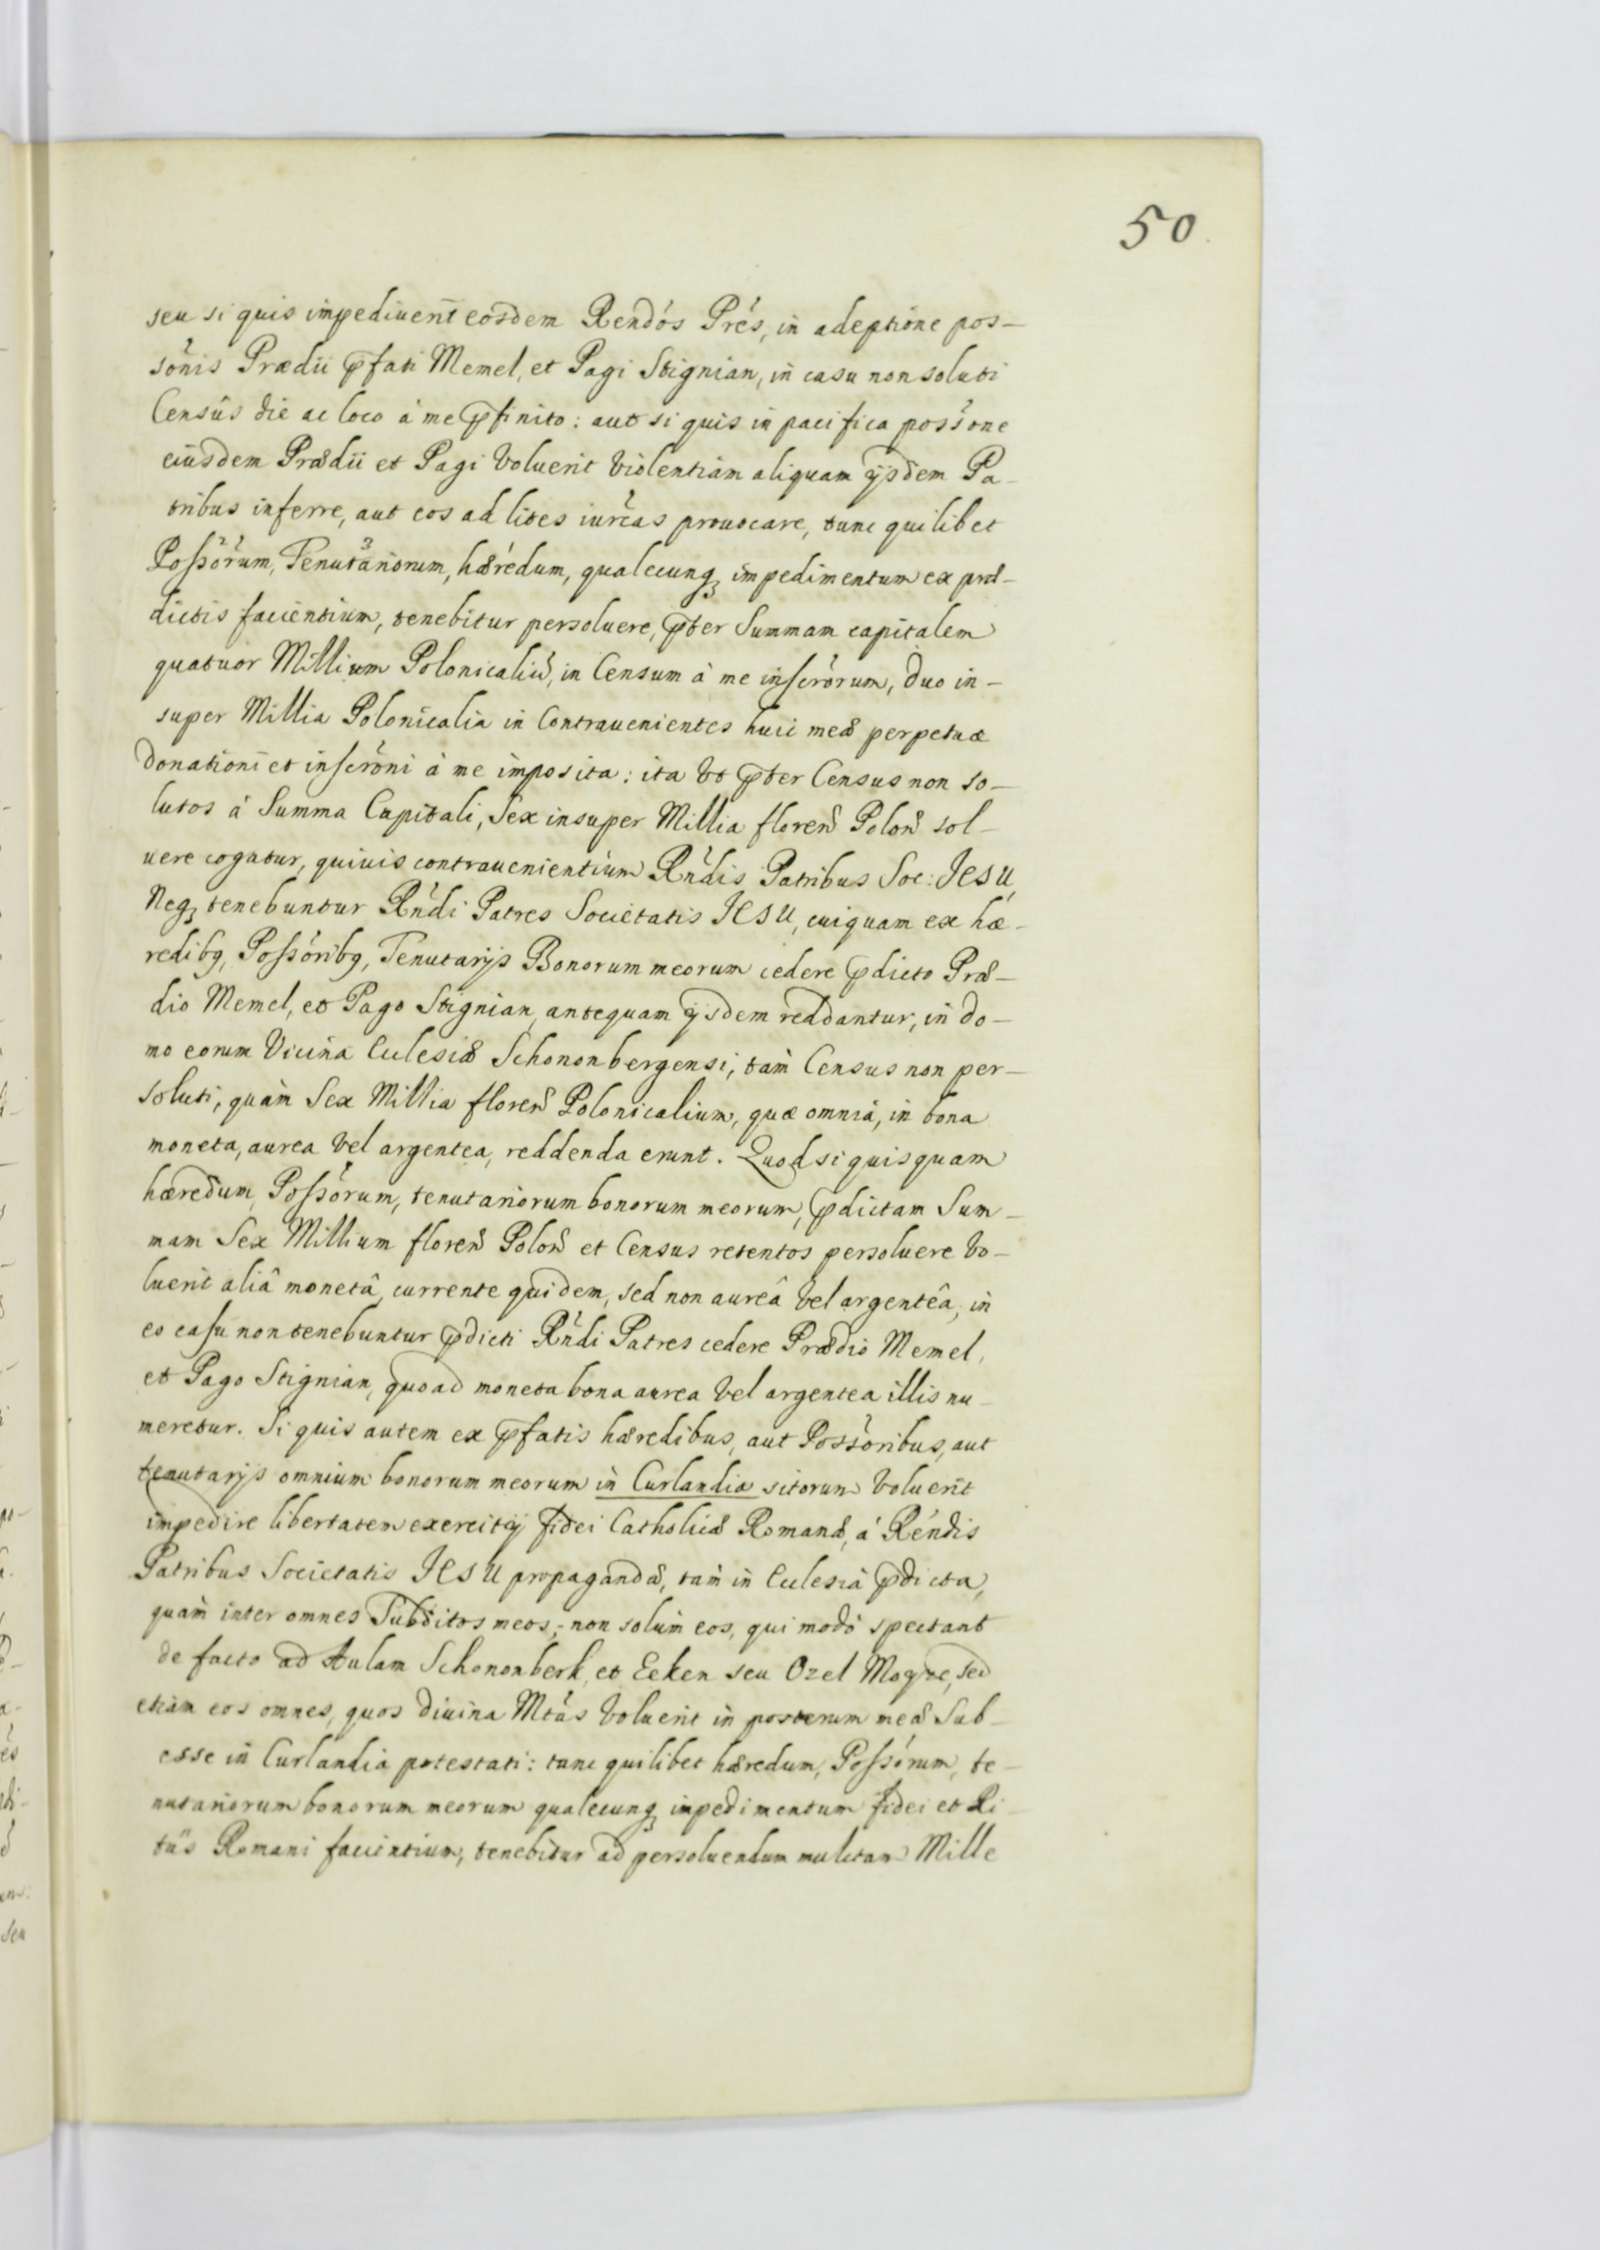 50
seu si quis impediuerit eosdem Rendós Prés, in adeptione pos-
sonis Prædii pfati Memel, et Pagi Stignian, in casu non soluti
Censûs die ac loco à me pfinito: aut si quis in pacifica possone
eiusdem Prædii et Pagi Voluerit Violentiam aliquam ijsdem Pa-
tribus inferre, aut eos ad lites iureas prouocare, tunc quilibet
Possorum, Tenutariorum, hæredum, qualecunq; impedimentum ex præ-
dictis facientium, tenebitur persoluere, pter Summam capitalem
quatuor Millium Polonicaliu, in Censum à me inscrorum, duo in-
super Millia Polonicalia in Contrauenientes huic meæ perpetuæ
donationi et inscroni à me imposita: ita Vt pter Census non so-
lutos à Summa Capitali, Sex insuper Millia floren Polon sol-
uere cogatur, quiuis contrauenientium Rndis Patribus Soc: JESU,
Neq; tenebuntur Rndi Patres Societatis JESU, cuiquam ex hæ-
redibq, Possoribq, Tenutarijs Bonorum meorum cedere pdicto Præ-
dio Memel, et Pago Stignian, antequam ijsdem reddantur, in do-
mo eorum Vicina Ecclesiæ Schononbergensi, tàm Census non per-
soluti, quàm Sex Millia floren Polonicalium, quæ omnia, in bona
moneta, aurea Vel argentea, reddenda erunt. Quod si quisquam
hæredum, Possorum, tenutariorum bonorum meorum, pdictam Sum-
mam Sex Millium floren Polon et Census retentos persoluere Vo-
luerit aliâ monetâ, currente quidem, sed non aureâ Vel argenteâ, in
eo casu non tenebuntur pdicti Rndi Patres cedere Prædio Memel,
et Pago Stignian, quoad moneta bona aurea Vel argentea illis nu-
meretur. Si quis autem ex pfatis hæredibus, aut Possoribus, aut
tenutarijs omnium bonorum meorum in Curlandia sitorum Voluerit
impedire libertatem exercitij fidei Catholicæ Romanæ, á Réndis
Patribus Societatis JESU propagandæ, tàm in Ecclesiâ pdicta,
quàm inter omnes Subditos meos, non solùm eos, qui modò spectant
de facto ad Aulam Schononberk, et Ecken seu Ozel Moyze, sed
etiàm eos omnes, quos diuina Mtas Voluerit in posterum meæ Sub-
esse in Curlandia potestati: tunc quilibet hæredum, Possorum, te-
nutariorum bonorum meorum qualecunq; impedimentum fidei et Ri-
tus Romani facientium, tenebitur ad persoluendum mulctam Mille